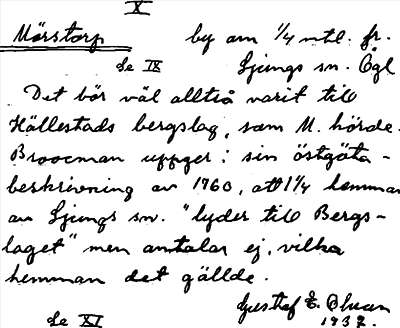 X
Mörstorp by om 1/4 mtl. fr.
Se IX Ljungs sn. Ögl
Det bör väl alltså varit till
Hällestads bergslag, som M. hörde.
Broocman uppger i sin östgöta-
beskrivning av 1760, att 1 1/4 hemman
av Ljungs sn. "lyder till Bergs-
laget" men antalar ej, vilka
hemman det gällde.
Gustaf E.
1937.
Se XI